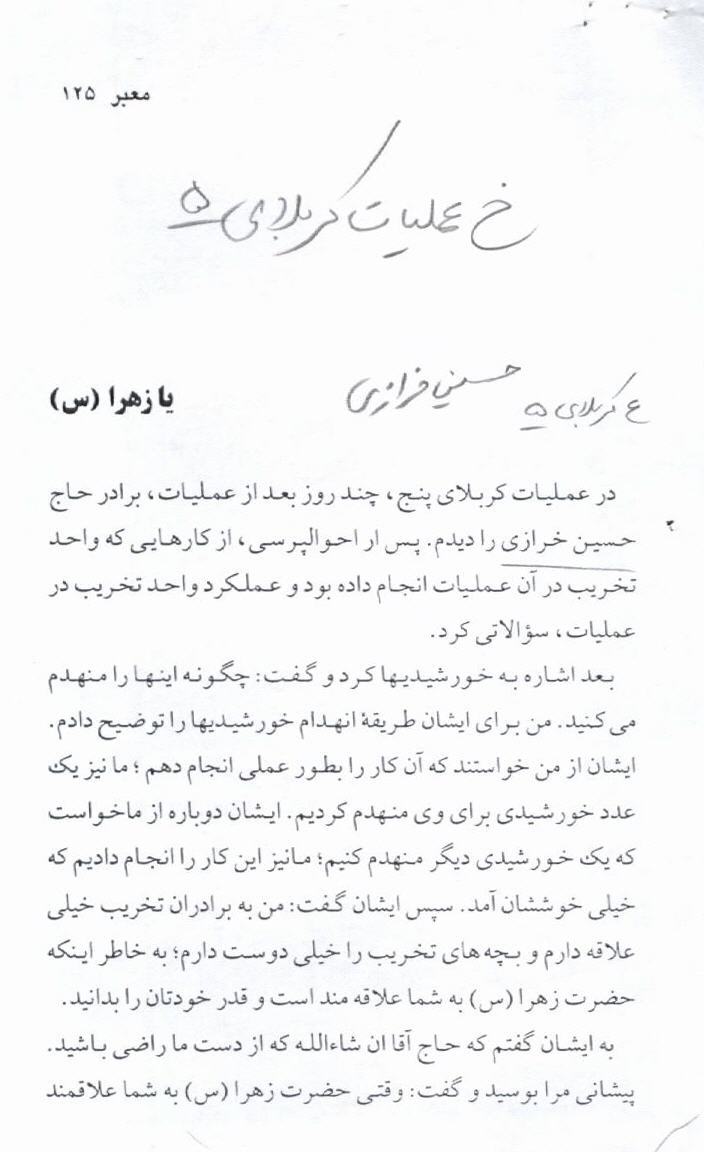 معبر ۱۲۵
خ عملیات کربلای ۵
ع کربلای ۵ حسین خرازی
یا زهرا (س)
در عملیات کربلای پنج، چند روز بعد از عملیات، برادر حاج
حسین خرازی را دیدم. پس ار احوالپرسی، از کارهایی که واحد
تخریب در آن عملیات انجام داده بود و عملکرد واحد تخریب در
عملیات، سؤالاتی کرد.
بعد اشاره به خورشیدیها کرد و گفت: چگونه اینها را منهدم
می کنید. من برای ایشان طریقهٔ انهدام خورشیدیها را توضیح دادم.
ایشان از من خواستند که آن کار را بطور عملی انجام دهم؛ ما نیز یک
عدد خورشیدی برای وی منهدم کردیم. ایشان دوباره از ماخواست
که یک خورشیدی دیگر منهدم کنیم؛ مانیز این کار را انجام دادیم که
خیلی خوششان آمد. سپس ایشان گفت: من به برادران تخریب خیلی
علاقه دارم و بچه های تخریب را خیلی دوست دارم؛ به خاطر اینکه
حضرت زهرا (س) به شما علاقه مند است و قدر خودتان را بدانید.
به ایشان گفتم که حاج آقا ان شاءالله که از دست ما راضی باشید.
پیشانی مرا بوسید و گفت: وقتی حضرت زهرا (س) به شما علاقمند